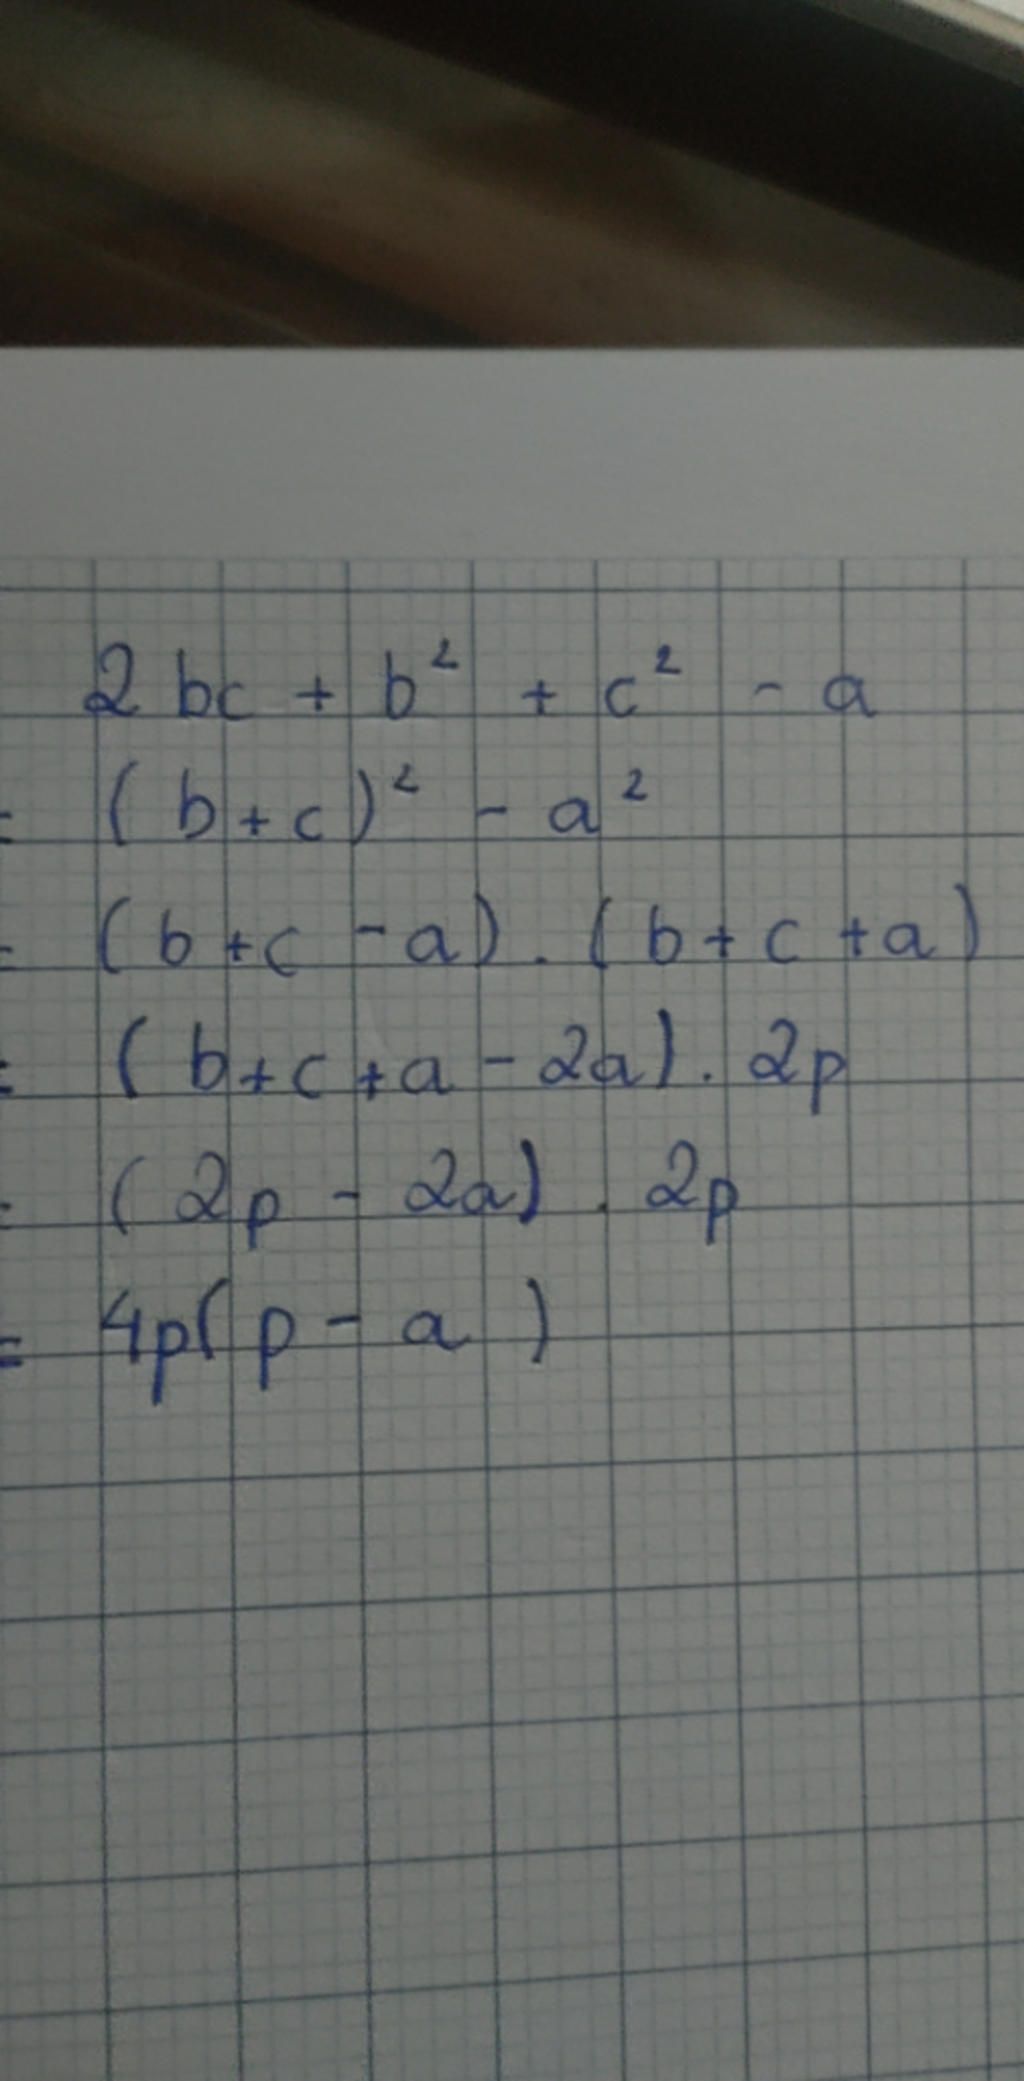 2 bc + b² + c² - a
= (b+c)² - a²
= (b+c-a).(b+c+a)
= (b+c+a-2a). 2p
= (2p - 2a) . 2p
= 4p(p - a)